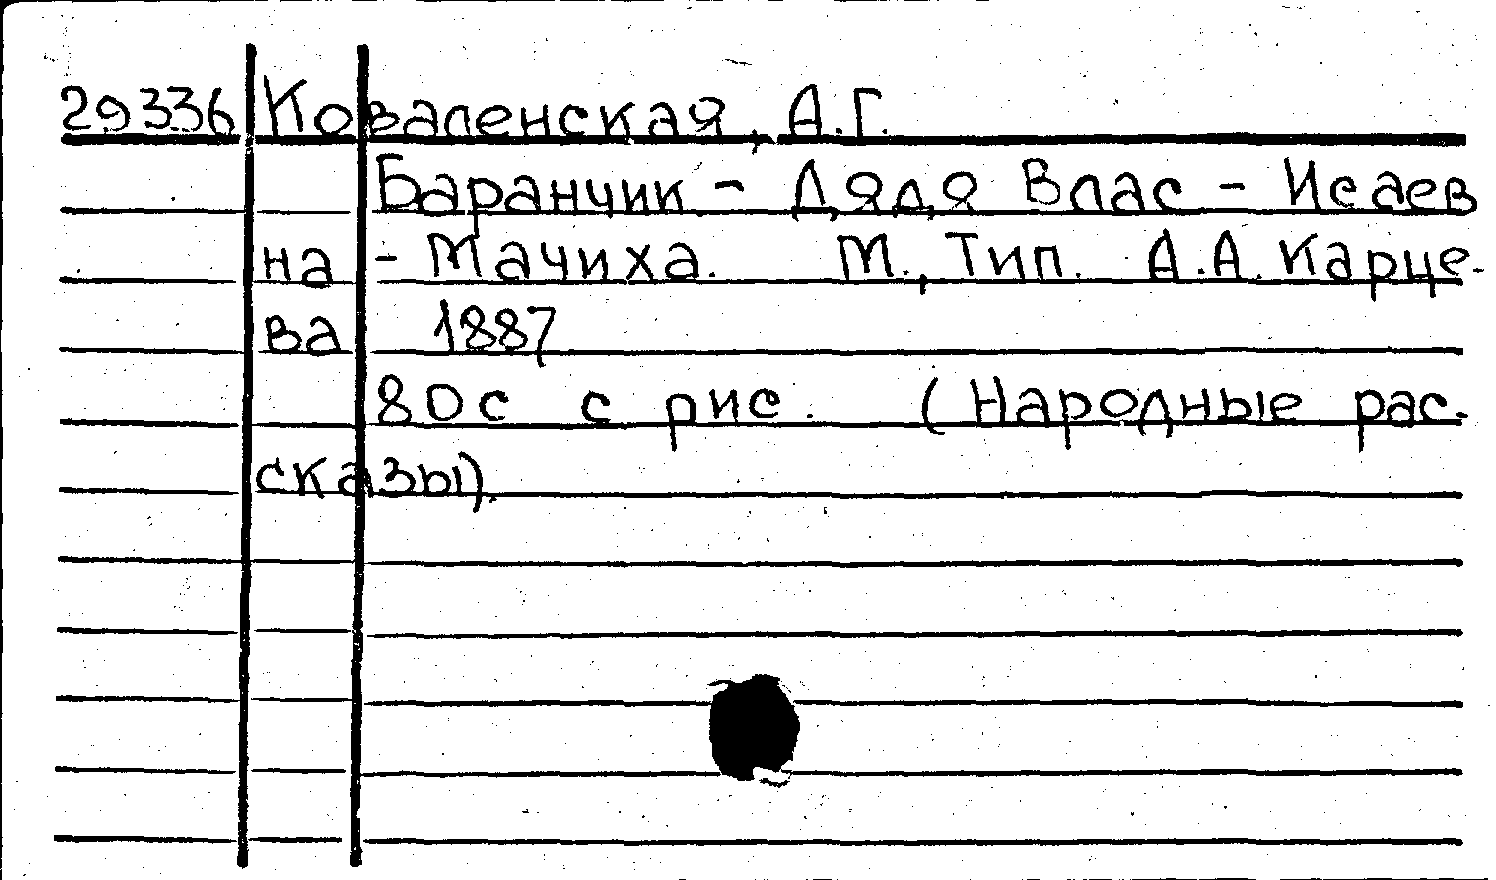 29336 Коваленская, А.Г.
Баранчик - Дядя Влас - Исаев
на - Мачиха. М., Тип. А.А. Карце-
ва 1887
80с с рис. (Народные рас-
сказы).